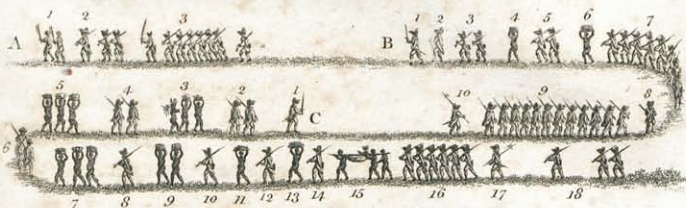 1 2 3 1 2 3 4 5 6 7
A B
5 4 3 2 1 10 9 8
C
6
7 8 9 10 11 12 13 14 15 16 17 18